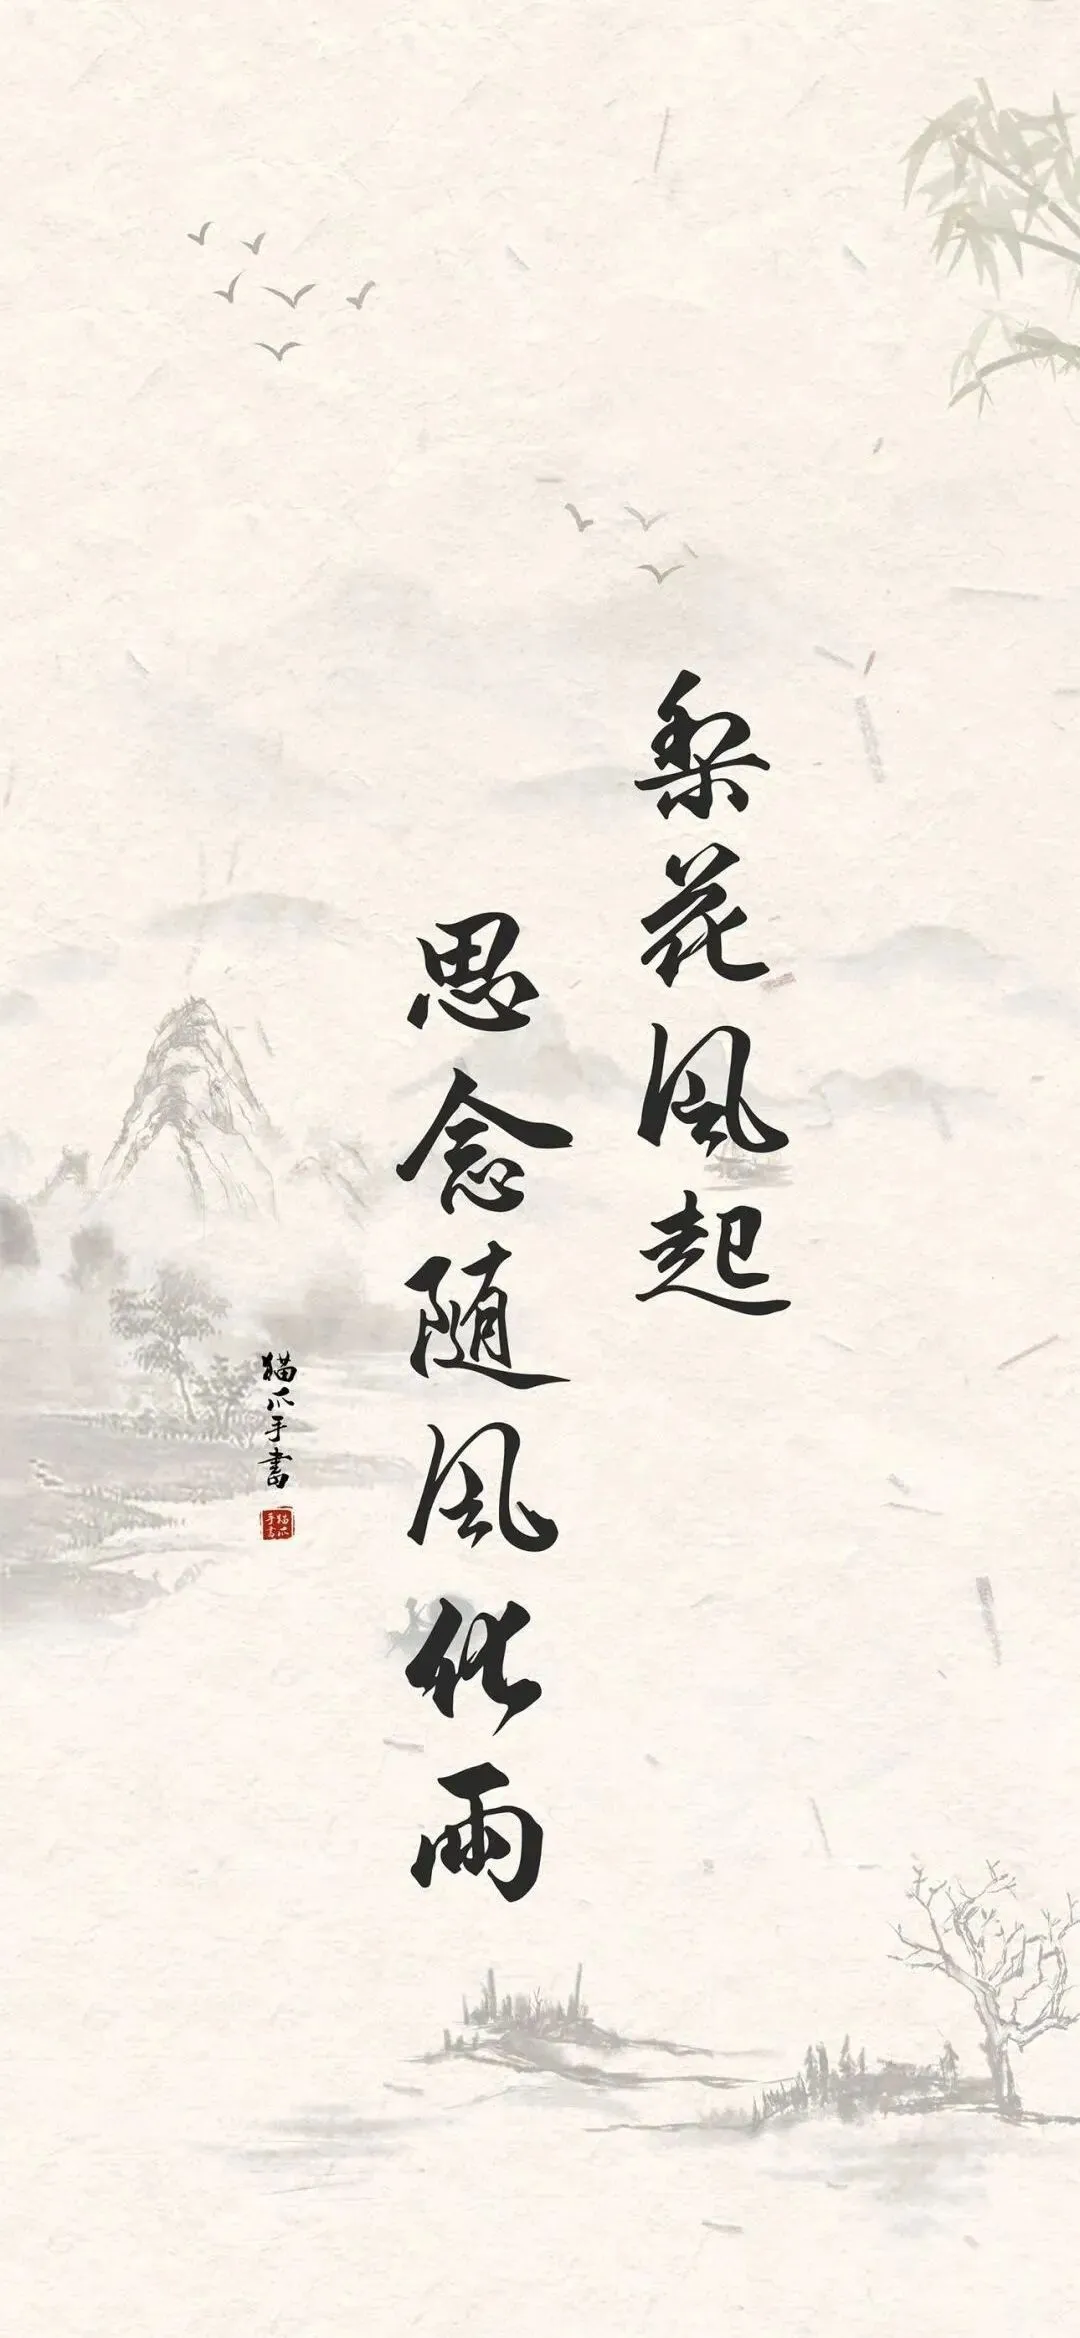 梨花风起
思念随风化雨
猫爪手書
猫爪
手書